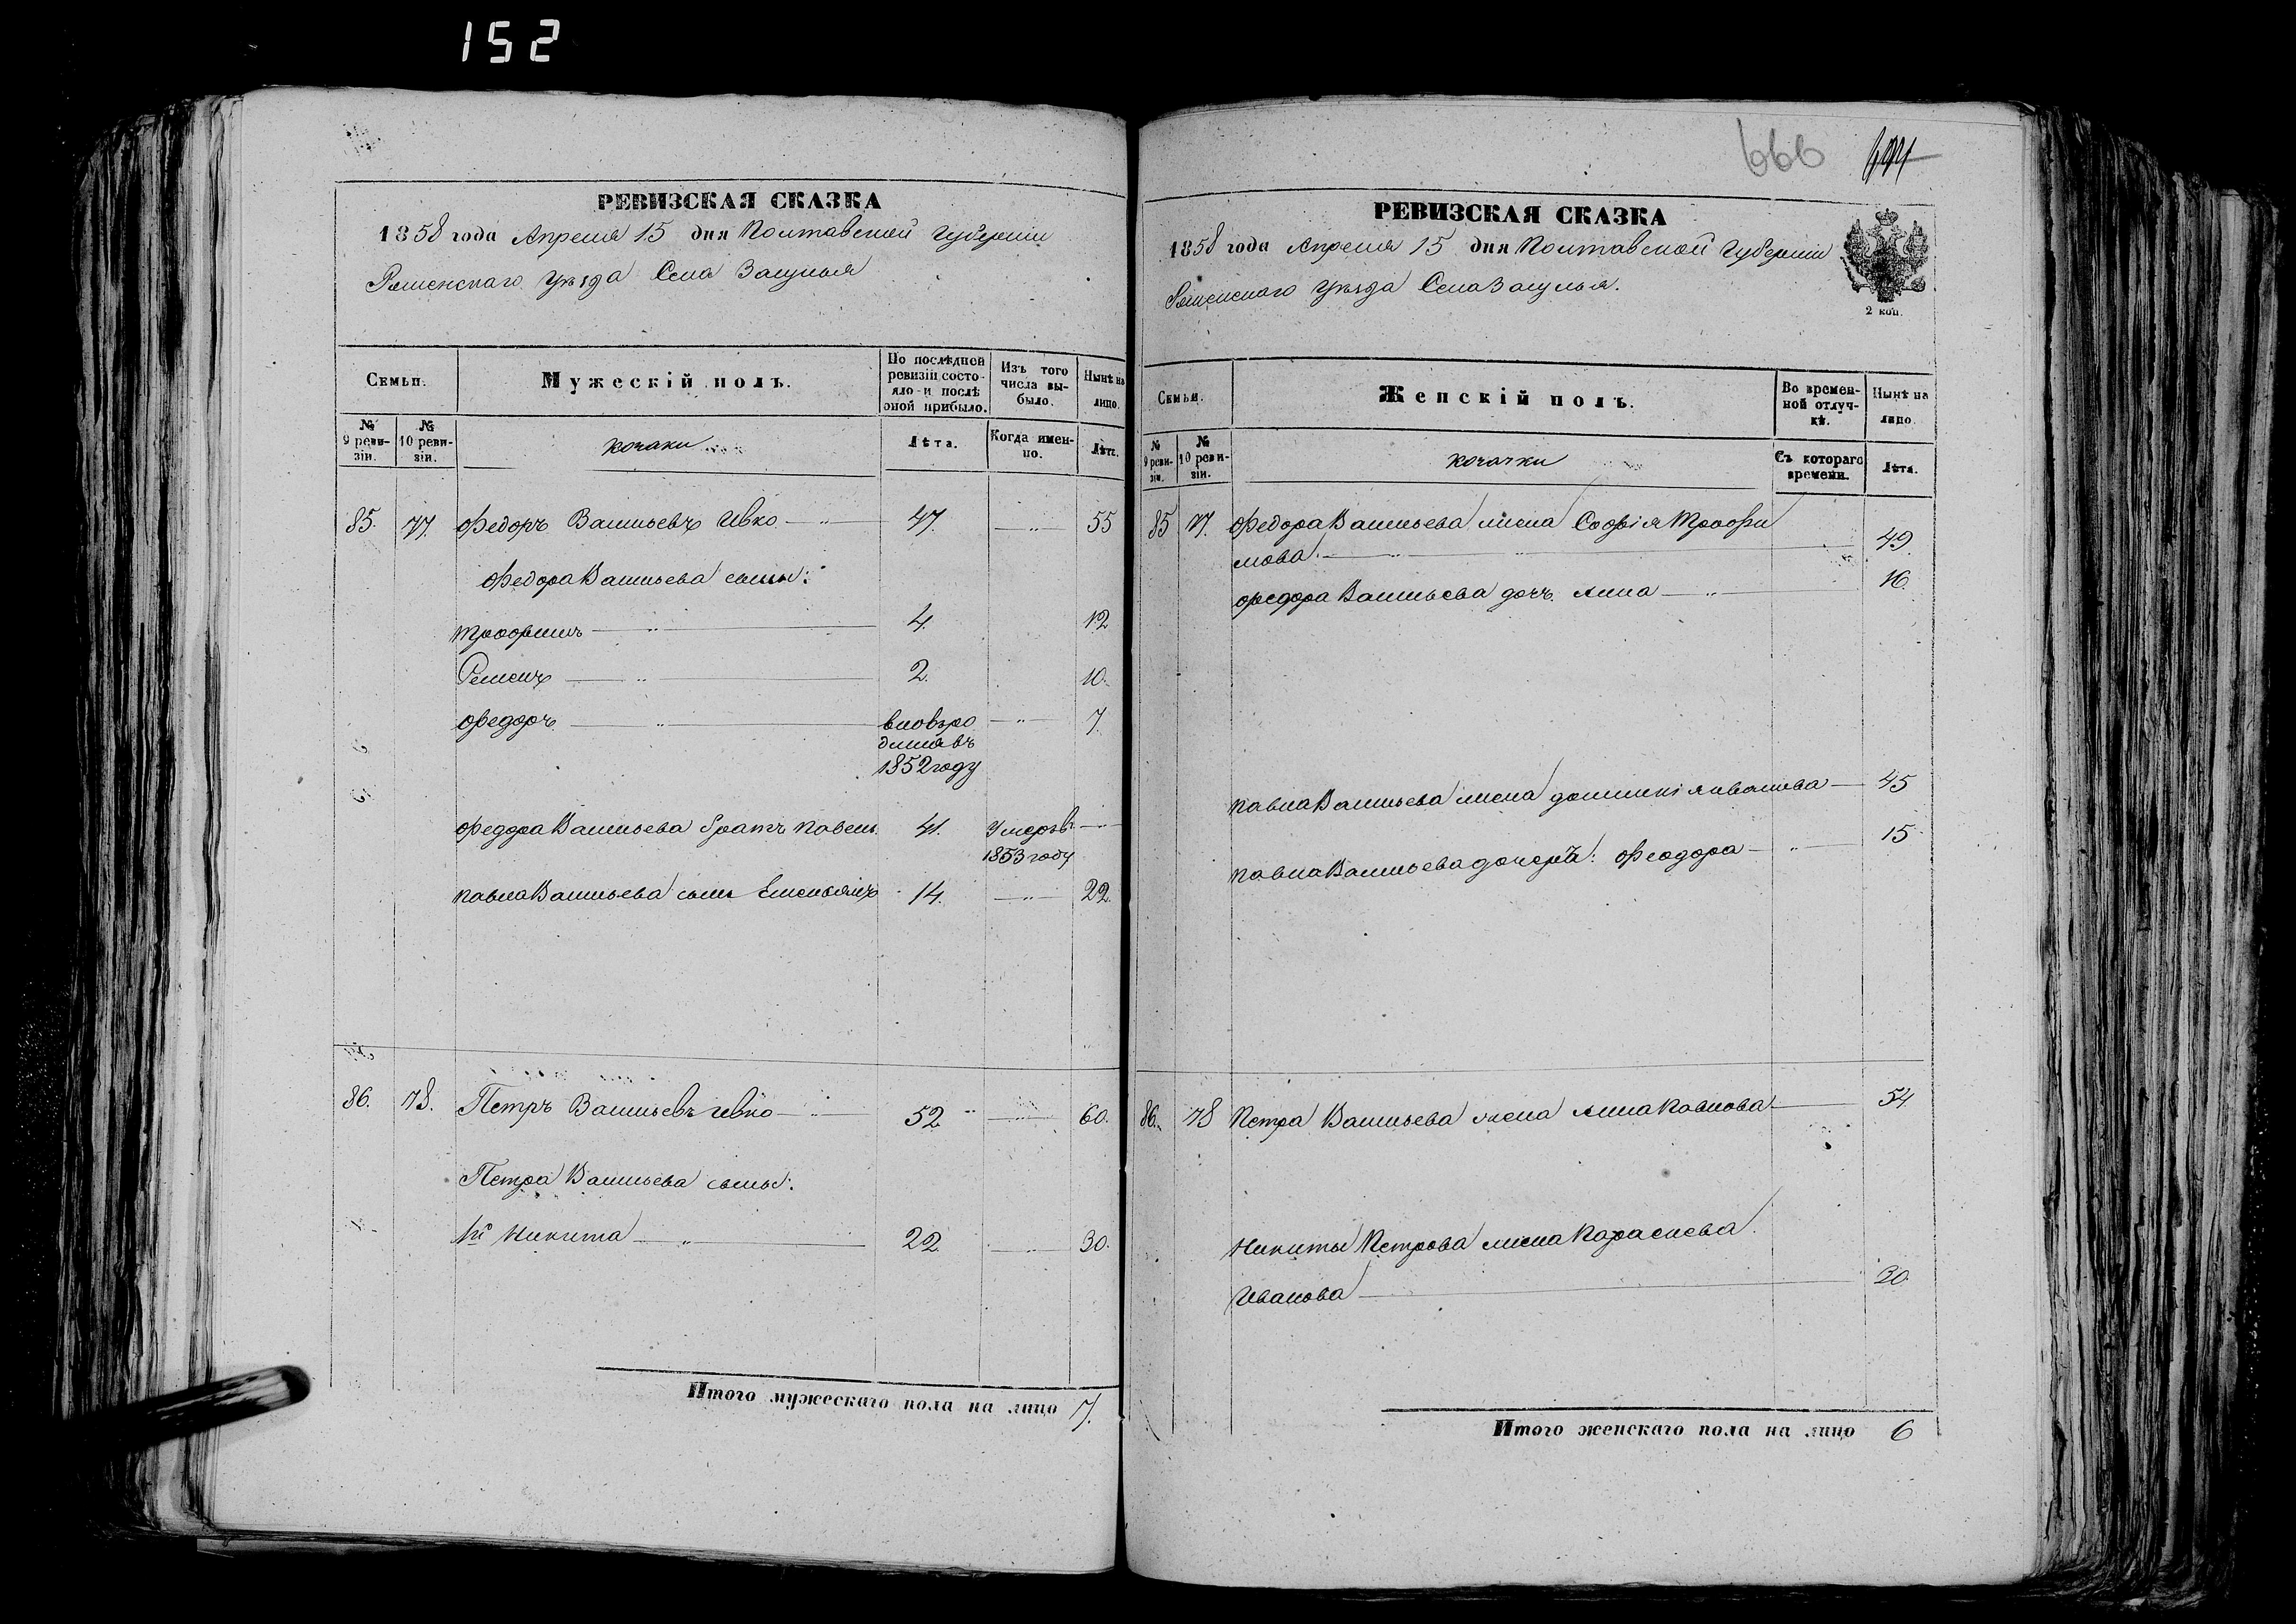 152
РЕВИЗСКАЯ СКАЗКА
1858 года Апреля 15 дня Полтавской Губерніи
Роменскаго Уѣзда Села Засулья
Семьи.
Мужескій полъ.
По послѣдней ревизіи состояло и послѣ оной прибыло.
Изъ того числа выбыло.
Нынѣ на лицо.
№ 9 ревизіи.
№ 10 ревизіи.
козаки
Лѣта.
Когда именно.
Лѣта.
85. 77. Федоръ Васильевъ Ивко 47. 55
Федора Васильева сыны:
Трофимъ 4. 12
Семенъ 2. 10.
Федоръ вновь ро 7.
дился въ
1852 году
Федора Васильева братъ Павелъ 41. Умеръ въ
1853 году
Павла Васильева сынъ Емельянъ 14. 22.
86. 78. Петръ Васильевъ Ивко 52 60.
Петра Васильева сыны:
1й Никита 22. 30.
Итого мужескаго пола на лицо 7.
666
РЕВИЗСКАЯ СКАЗКА
1858 года Апреля 15 дня Полтавской Губерніи
Роменскаго Уѣзда Села Засулья.
2 коп.
Семьи.
Женскій полъ.
Во временной отлучкѣ.
Нынѣ на лицо.
№ 9 ревизіи.
№ 10 ревизіи.
козачки
Съ котораго времени.
Лѣта.
85 77. Федора Васильева жена Софія Трофи
мова. 49.
Федора Васильева дочь Анна 16.
Павла Васильева жена 45
Павла Васильева дочерь: Феодора 15
86. 78 Петра Васильева жена Анна Павлова 54
Никиты Петрова жена Параскева
Иванова 30.
Итого женскаго пола на лицо 6